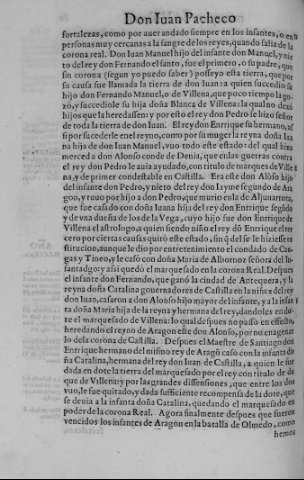 Don Iuan Pacheco
fortalezas, como por auer andado siempre en los infantes, o en
personas muy cercanas a la sangre de los reyes, quando salia de la
corona real. Don Iuan Manuel hijo del infante don Manuel, y nie
to del rey don Fernando el santo, fue el primero, o su padre, que
sin corona (segun yo puedo saber) posseyo esta tierra, que por
su causa fue llamada la tierra de don Iuan: a quien sucedio su
hijo don Fernando Manuel, o de Villena, que poco tiempo la go-
zò, y succediole su hija doña Blanca de Villena: la qual no dexò
hijos que la heredassen: y por esto el rey don Pedro se hizo señor
de toda la tierra de don Iuan. El rey don Enrique su hermano, as
si por sucederle en el reyno, como por su muger la reyna doña Iua
na hija de don Iuan Manuel, vuo todo este estado: del qual hizo
merced a don Alonso conde de Denia, que en las guerras contra
el rey don Pedro le auia ayudado, con titulo de marques de Ville
na, y de primer condestable en Castilla. Era este don Alõso hijo
del infante don Pedro, y nieto del rey don Iayme segundo de Ara
gon, y tuuo por hijo a don Pedro, que murio en la de Aljuuarrota,
que fue casado con doña Iuana hija del rey don Enrique segũdo
y de vna dueña de los de la Vega, cuyo hijo fue don Enrique de
Villena el astrologo, a quien siendo niño el rey dõ Enrique el ter
cero por ciertas causas quitò este estado, sin q̃ del se le hiziesse re
stitucion, aunque le dio por entretenimiento el condado de Can-
gas y Tineo, y le casò con doña Maria de Albornoz señora del In-
fantadgo: y assi quedò el marquesado en la corona Real. Despues
el infante don Fernando, que ganò la ciudad de Antequera, y la
reyna doña Catalina gouernadores de Castilla en la niñez del rey
don Iuan, casaron a don Alonso hijo mayor del infante, y a la infan
ta doña Maria hija de la reyna y hermana del rey, dandoles en do-
te el marquesado de Villena: lo qual despues no passò en effecto,
heredando el reyno de Aragon este don Alonso, por no enagenar
lo de la corona de Castilla. Despues el Maestre de Santiago don
Enrique hermano del mismo rey de Aragõ casò con la infanta do
ña Catalina, hermana del rey don Iuan de Castilla, a quien le fue
dada en dote la tierra del marquesado por el rey con titulo de du
que de Villena: y por las grandes dissensiones, que entre los dos
vuo, le fue quitado, y dada sufficiente recompensa de la dote, que
se deuia a la infanta doña Catalina, quedando el marquesado en
poder de la corona Real. Agora finalmente despues que fueron
vencidos los infantes de Aragon en la batalla de Olmedo, como
hemos